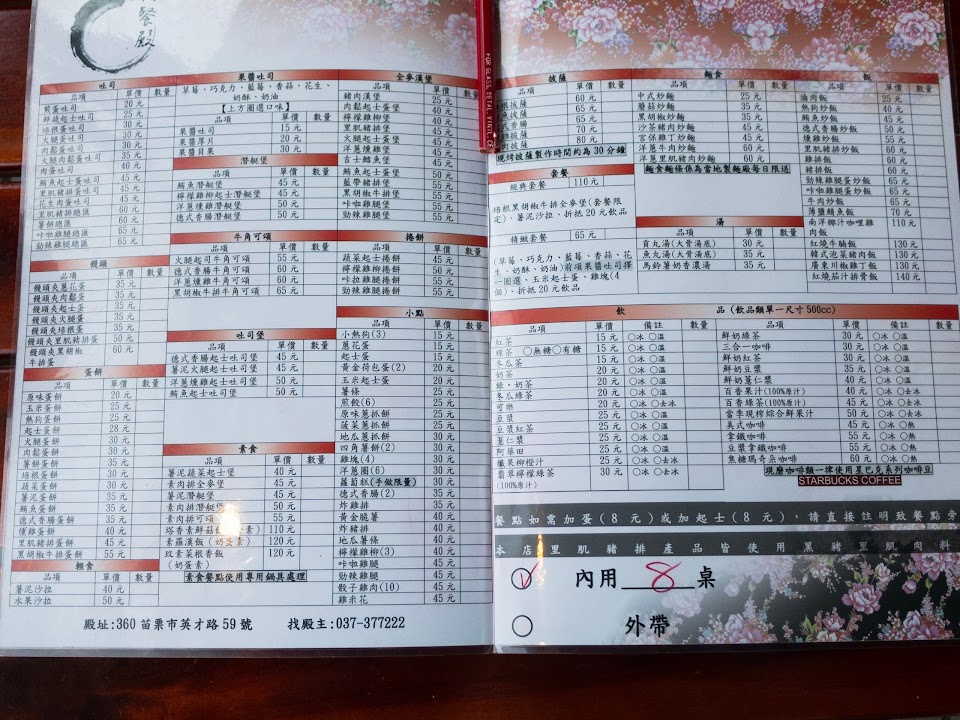 餐殿
吐司
品項 單價 數量
煎蛋吐司 20 元
鮮蔬起士蛋吐司 25 元
培根蛋吐司 30 元
火腿蛋吐司 30 元
肉鬆蛋吐司 30 元
火腿肉鬆蛋吐司 35 元
肉蛋吐司 40 元
鮪魚起士蛋吐司 45 元
里肌豬排蛋吐司 45 元
花生肉蛋吐司 45 元
里肌豬排總匯 60 元
薯餅總匯 65 元
咔啦雞腿總匯 65 元
勁辣雞腿總匯 65 元
饅頭
品項 單價 數量
饅頭夾蔥花蛋 35 元
饅頭夾肉鬆蛋 35 元
饅頭夾起士蛋 35 元
饅頭夾火腿蛋 35 元
饅頭夾培根蛋 35 元
饅頭夾里肌豬排蛋 50 元
饅頭夾黑胡椒牛排蛋 60 元
蛋餅
品項 單價 數量
原味蛋餅 20 元
玉米蛋餅 25 元
熱狗蛋餅 25 元
起士蛋餅 28 元
火腿蛋餅 30 元
肉鬆蛋餅 30 元
薯餅蛋餅 30 元
培根蛋餅 30 元
蔬菜蛋餅 30 元
薯泥蛋餅 35 元
鮪魚蛋餅 35 元
德式香腸蛋餅 35 元
燻雞蛋餅 40 元
里肌豬排蛋餅 45 元
黑胡椒牛排蛋餅 55 元
輕食
品項 單價 數量
薯泥沙拉 40 元
水果沙拉 50 元
果醬吐司
草莓、巧克力、藍莓、香蒜、花生、奶酥、奶油
【上方圈選口味】
品項 單價 數量
果醬吐司 15 元
果醬厚片 20 元
果醬貝果 30 元
潛艇堡
品項 單價 數量
鮪魚潛艇堡 45 元
檸檬雞柳起士潛艇堡 45 元
洋蔥燻雞潛艇堡 50 元
德式香腸潛艇堡 50 元
牛角可頌
品項 單價 數量
火腿起司牛角可頌 55 元
德式香腸牛角可頌 60 元
洋蔥燻雞牛角可頌 60 元
黑胡椒牛排牛角可頌 65 元
吐司堡
品項 單價 數量
德式香腸起士吐司堡 45 元
薯泥火腿起士吐司堡 45 元
洋蔥燻雞起士吐司堡 50 元
鮪魚起士吐司堡 50 元
素食
品項 單價 數量
薯泥蔬菜起士堡 40 元
素肉排全麥堡 45 元
薯泥潛艇堡 45 元
素肉排潛艇堡 50 元
素肉排可頌 55 元
塔香素鮮菇 110 元
素羅漢飯(奶蛋素) 120 元
玫素菜根香飯(奶蛋素) 120 元
素食餐點使用專用鍋具處理
全麥漢堡
品項 單價 數量
豬肉漢堡 25 元
肉鬆起士蛋堡 40 元
檸檬雞柳堡 40 元
里肌豬排堡 45 元
火腿起士蛋堡 45 元
洋蔥燻雞堡 45 元
吉士鱈魚堡 45 元
鮪魚起士蛋堡 50 元
藍帶豬排堡 50 元
黑胡椒牛排堡 55 元
咔啦雞腿堡 55 元
勁辣雞腿堡 55 元
捲餅
品項 單價 數量
蔬菜起士捲餅 45 元
檸檬雞柳捲餅 50 元
里肌豬排捲餅 50 元
咔啦雞腿捲餅 55 元
勁辣雞腿捲餅 55 元
小點
品項 單價 數量
小熱狗(3) 15 元
蔥花蛋 15 元
起士蛋 15 元
黃金荷包蛋(2) 20 元
玉米起士蛋 20 元
薯條 25 元
煎餃(6) 25 元
原味蔥抓餅 25 元
菠菜蔥抓餅 30 元
地瓜蔥抓餅 30 元
四角薯餅(2) 30 元
雞塊(4) 30 元
洋蔥圈(6) 30 元
蘿蔔糕(手做限量) 30 元
德式香腸(2) 35 元
炸雞排 35 元
黃金脆薯 35 元
炸豬排 40 元
地瓜薯條 40 元
檸檬雞柳(3) 40 元
咔啦雞腿 45 元
勁辣雞腿 45 元
骰子雞肉(10) 45 元
雞米花 45 元
殿址:360 苗栗市英才路 59 號 找殿主:037-377222
披薩
品項 單價 數量
60 元
65 元
65 元
70 元
80 元
現烤披薩製作時間約為 30 分鐘
套餐
經典套餐 110 元
培根黑胡椒牛排全麥堡(套餐限定)、薯泥沙拉、折抵 20 元飲品
精緻套餐 65 元
(草莓、巧克力、藍莓、香蒜、花生、奶酥、奶油)前項果醬吐司擇一圈選、玉米起士蛋、雞塊(4個)、折抵 20 元飲品
麵食
品項 單價 數量
中式炒麵 25 元
蘑菇炒麵 35 元
黑胡椒炒麵 35 元
沙茶豬肉炒麵 45 元
宮保雞丁炒麵 50 元
洋蔥牛肉炒麵 60 元
洋蔥里肌豬肉炒麵 60 元
麵食麵條係為當地製麵廠每日限送
湯
品項 單價 數量
貢丸湯(大骨湯底) 30 元
魚丸湯(大骨湯底) 35 元
馬鈴薯奶香濃湯 35 元
飯
品項 單價 數量
滷肉飯 25 元
熱狗炒飯 40 元
鮪魚炒飯 45 元
德式香腸炒飯 50 元
里肌豬排炒飯 50 元
雞排飯 60 元
豬排飯 60 元
勁辣雞腿蛋炒飯 65 元
咔啦雞腿蛋炒飯 65 元
牛肉炒飯 65 元
薄鹽鯖魚飯 70 元
南洋椰汁咖哩雞肉飯 110 元
紅燒牛腩飯 130 元
韓式泡菜豬肉飯 130 元
廣東川椒雞丁飯 130 元
紅燒茄汁排骨飯 140 元
飲 品(飲品類單一尺寸 500cc)
品項 單價 備註 數量
紅茶 15 元 ○冰 ○溫
綠茶 ○無糖 ○有糖 15 元 ○冰 ○溫
冬瓜茶 15 元 ○冰 ○溫
奶茶 20 元 ○冰 ○溫
綠、奶茶 20 元 ○冰 ○溫
冬瓜綠茶 20 元 ○冰 ○溫
可樂 20 元 ○冰 ○去冰
豆漿 20 元 ○冰 ○溫
豆漿紅茶 20 元 ○冰 ○溫
薏仁漿 25 元 ○冰 ○溫
阿華田 25 元 ○冰 ○溫
纖果柳橙汁 25 元 ○冰 ○去冰
翡翠檸檬綠茶(100%原汁) 30 元 ○冰 ○去冰
品項 單價 備註 數量
鮮奶綠茶 30 元 ○冰 ○溫
三合一咖啡 30 元 ○冰 ○溫
鮮奶紅茶 30 元 ○冰 ○溫
鮮奶豆漿 35 元 ○冰 ○溫
鮮奶薏仁漿 40 元 ○冰 ○溫
百香果汁(100%原汁) 40 元 ○冰 ○去冰
百香綠茶(100%原汁) 45 元 ○冰 ○去冰
當季現榨綜合鮮果汁 50 元 ○冰 ○去冰
美式咖啡 45 元 ○冰 ○熱
拿鐵咖啡 55 元 ○冰 ○熱
豆漿拿鐵咖啡 55 元 ○冰 ○熱
焦糖瑪奇朵咖啡 60 元 ○冰 ○熱
現磨咖啡類一律使用星巴克系列咖啡豆
STARBUCKS COFFEE
餐點如需加蛋(8 元)或加起士(8 元)，請直接註明致餐點旁
本店里肌豬排產品皆使用黑豬里肌肉料
內用 8 桌
外帶